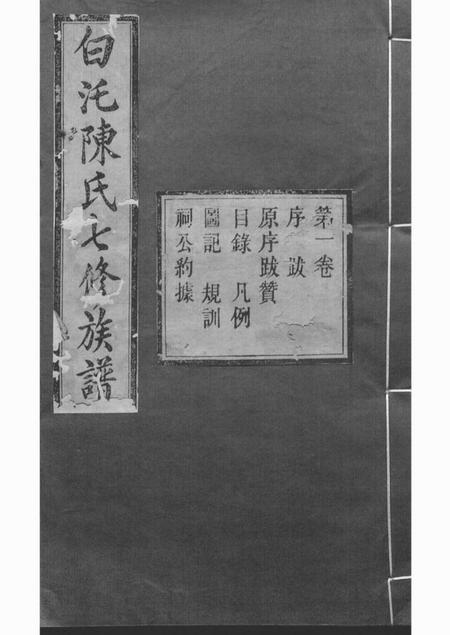 白沱陳氏七修族譜
第一卷
序 跋
原序跋贊
目錄 凡例
圖記 規訓
祠公約據